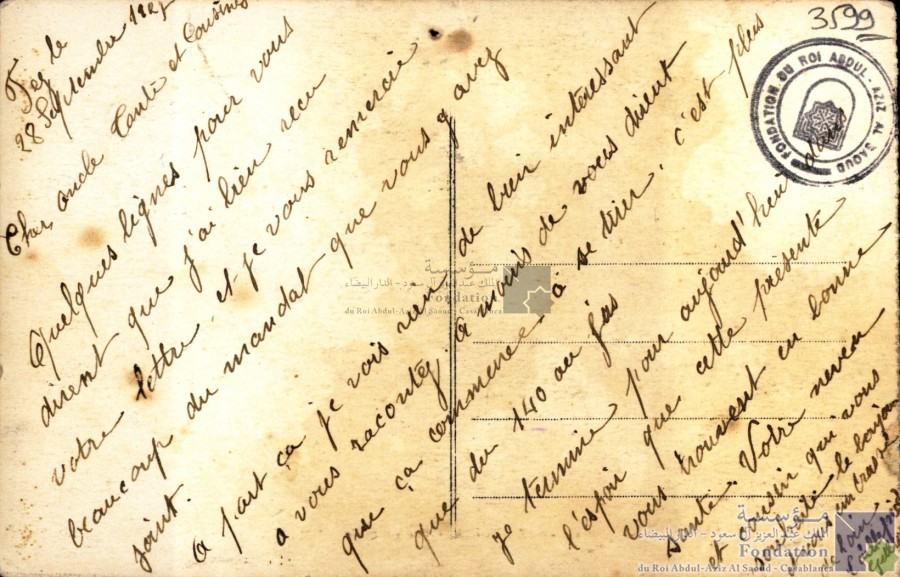 3599
FONDATION DU ROI ABDUL-AZIZ AL SAOUD
Fez le
28 Septembre 1927
Cher oncle Tante et Cousines
Quelques lignes pour vous
dirent que j'ai bien recu
votre lettre et je vous remercie
beaucoup du mandat que vous y avez
joint.
A part ça je vois rien de bien intéressant
a vous racontez a moins de vous dirent
que ça commence à se tirer, c'est plus
que du 140 au jus
je termine pour aujourd'hui dans
l'espoir que cette présente
vous trouvent en bonne
santé. Votre neveu
et cousin qui vous
souhaite le bonjour
مؤسسة
الملك عبد العزيز آل سعود - الدار البيضاء
Fondation
du Roi Abdul-Aziz Al Saoud - Casablanca
مؤسسة
الملك عبد العزيز آل سعود - الدار البيضاء
Fondation
du Roi Abdul-Aziz Al Saoud - Casablanca